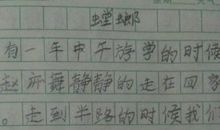 螳螂
有一年中午放学的时候
赵 舞静静的走在回家
。走到半路的时候我